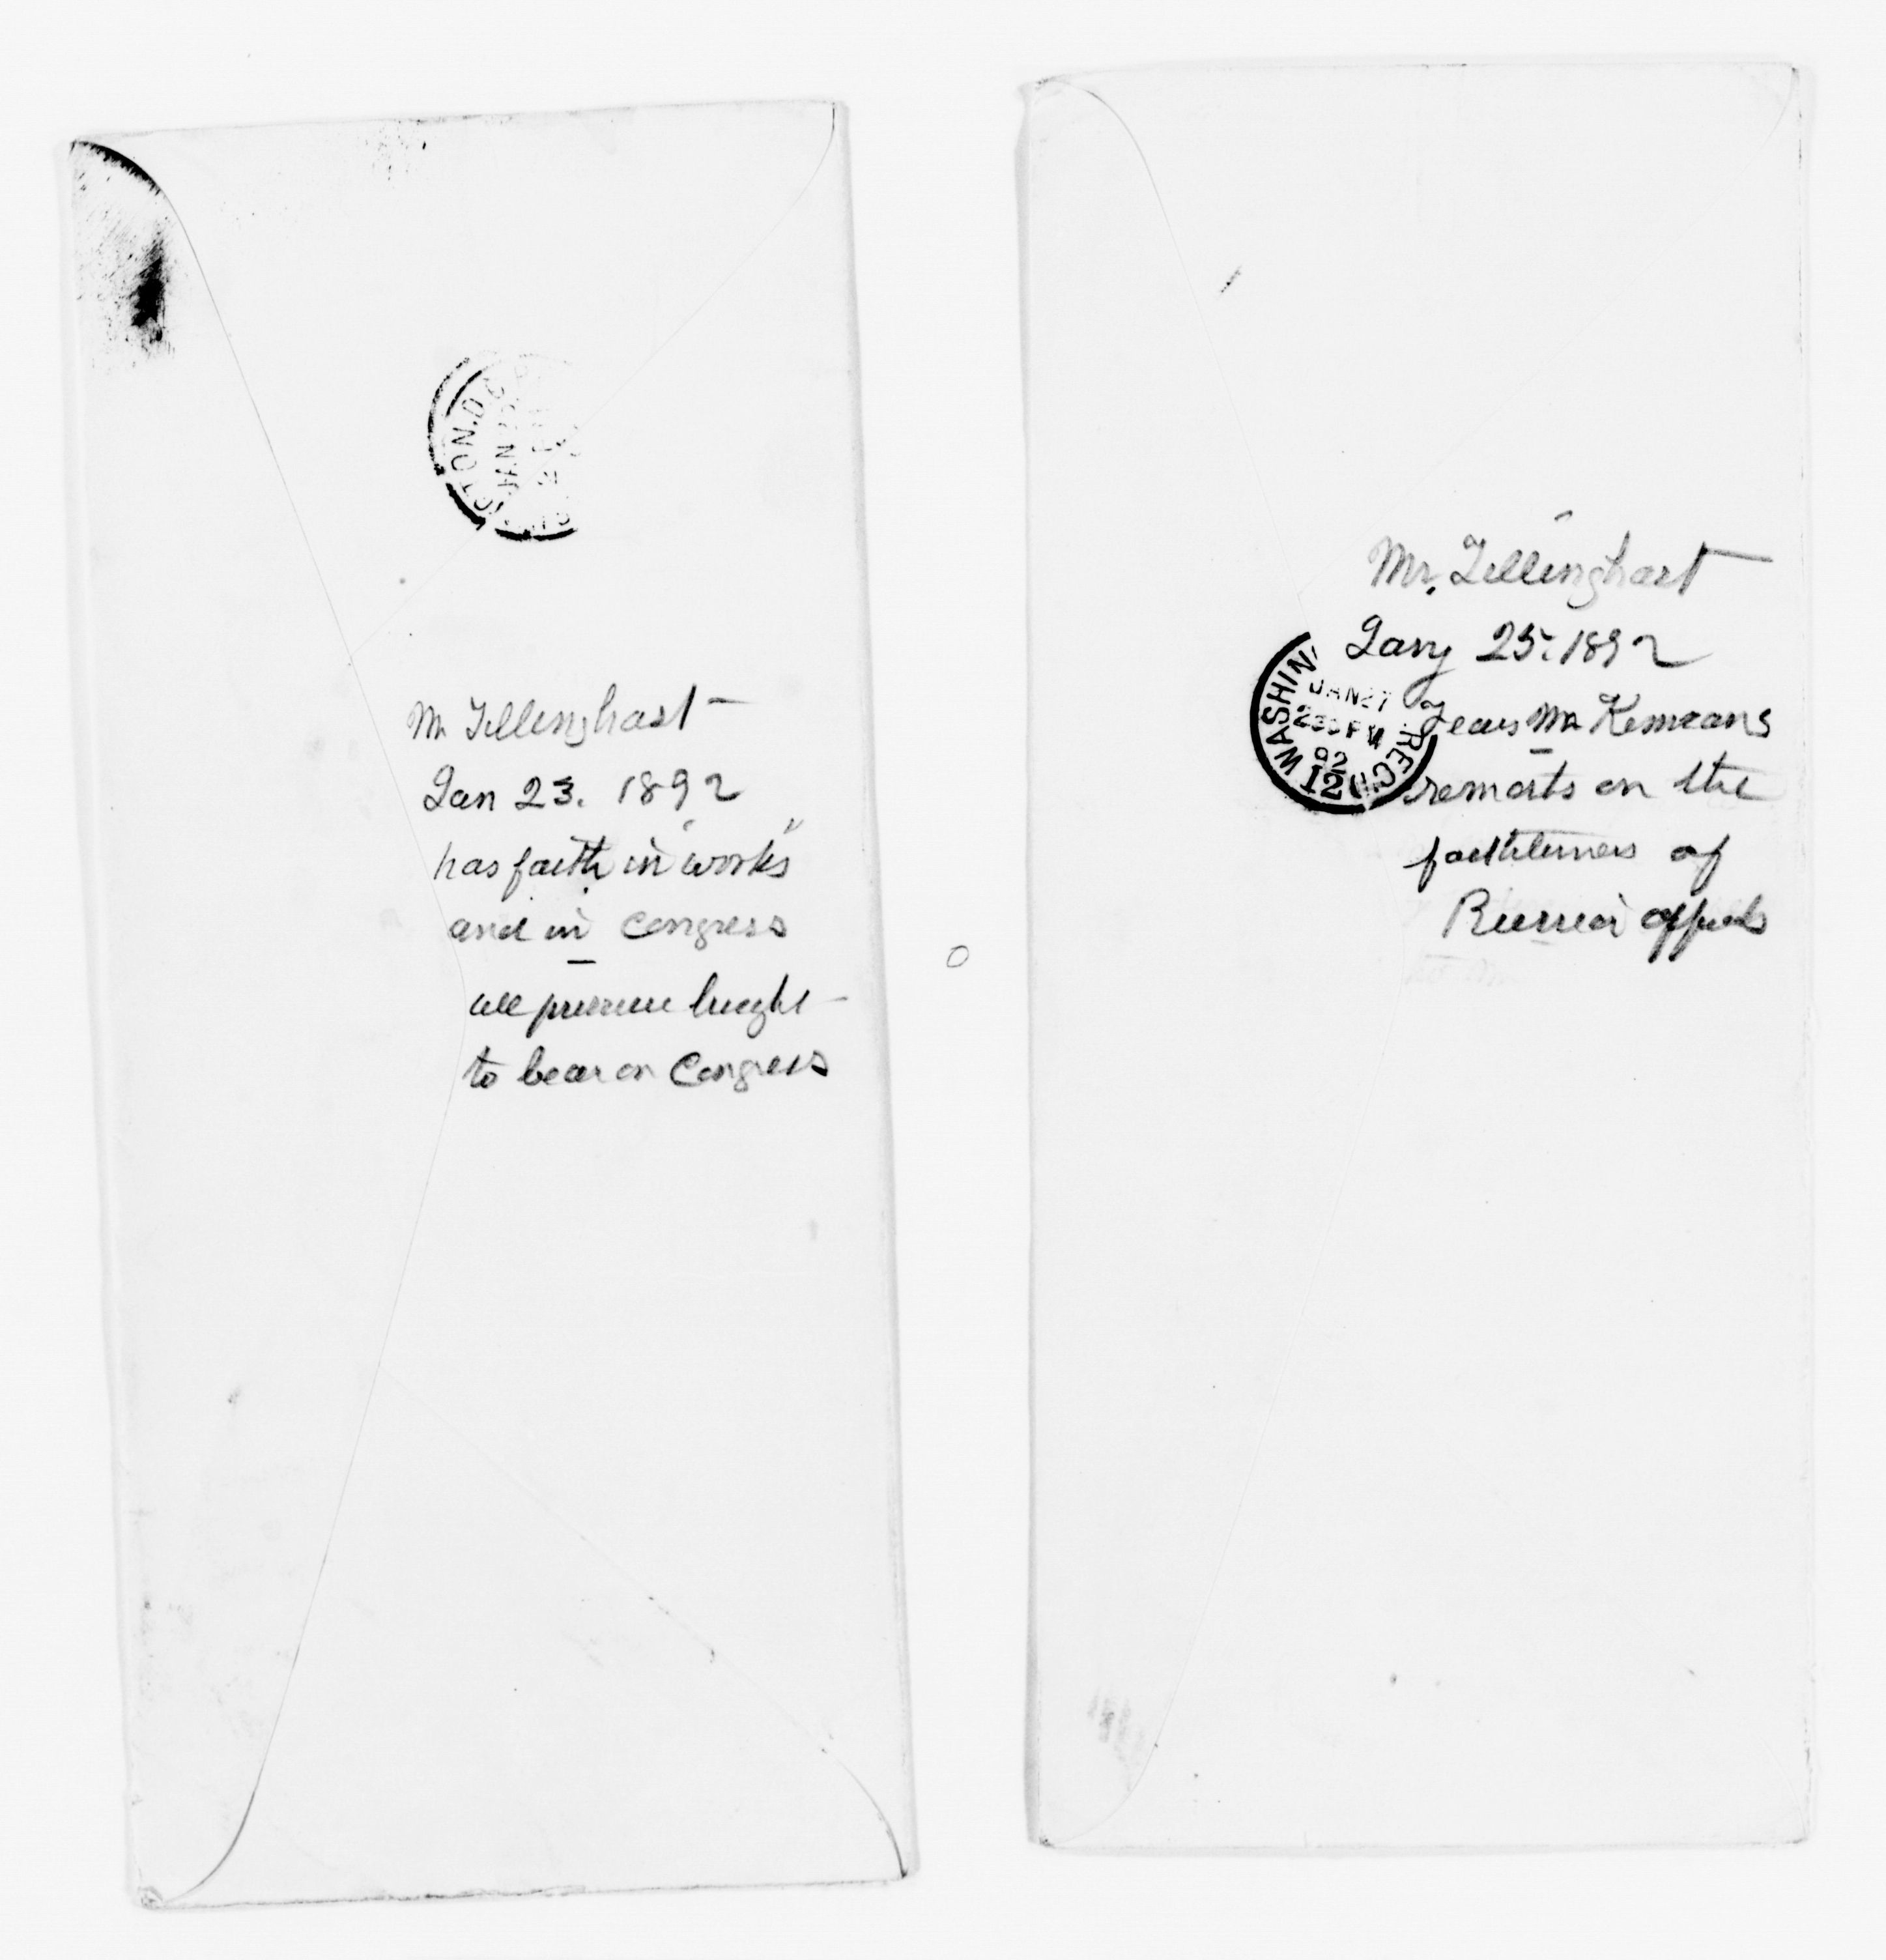 TON, D.C.
JAN 2
2 P
Mr Tillinghast
Jan 23. 1892
has faith in "works"
and in Congress
all pressure brought
to bear on Congress
Mr. Tillinghast
Jany 25. 1892
WASHIN
JAN 27
230 PM
92
12
REC'
Fears Mr Kennans
remarks on the
of
Russian